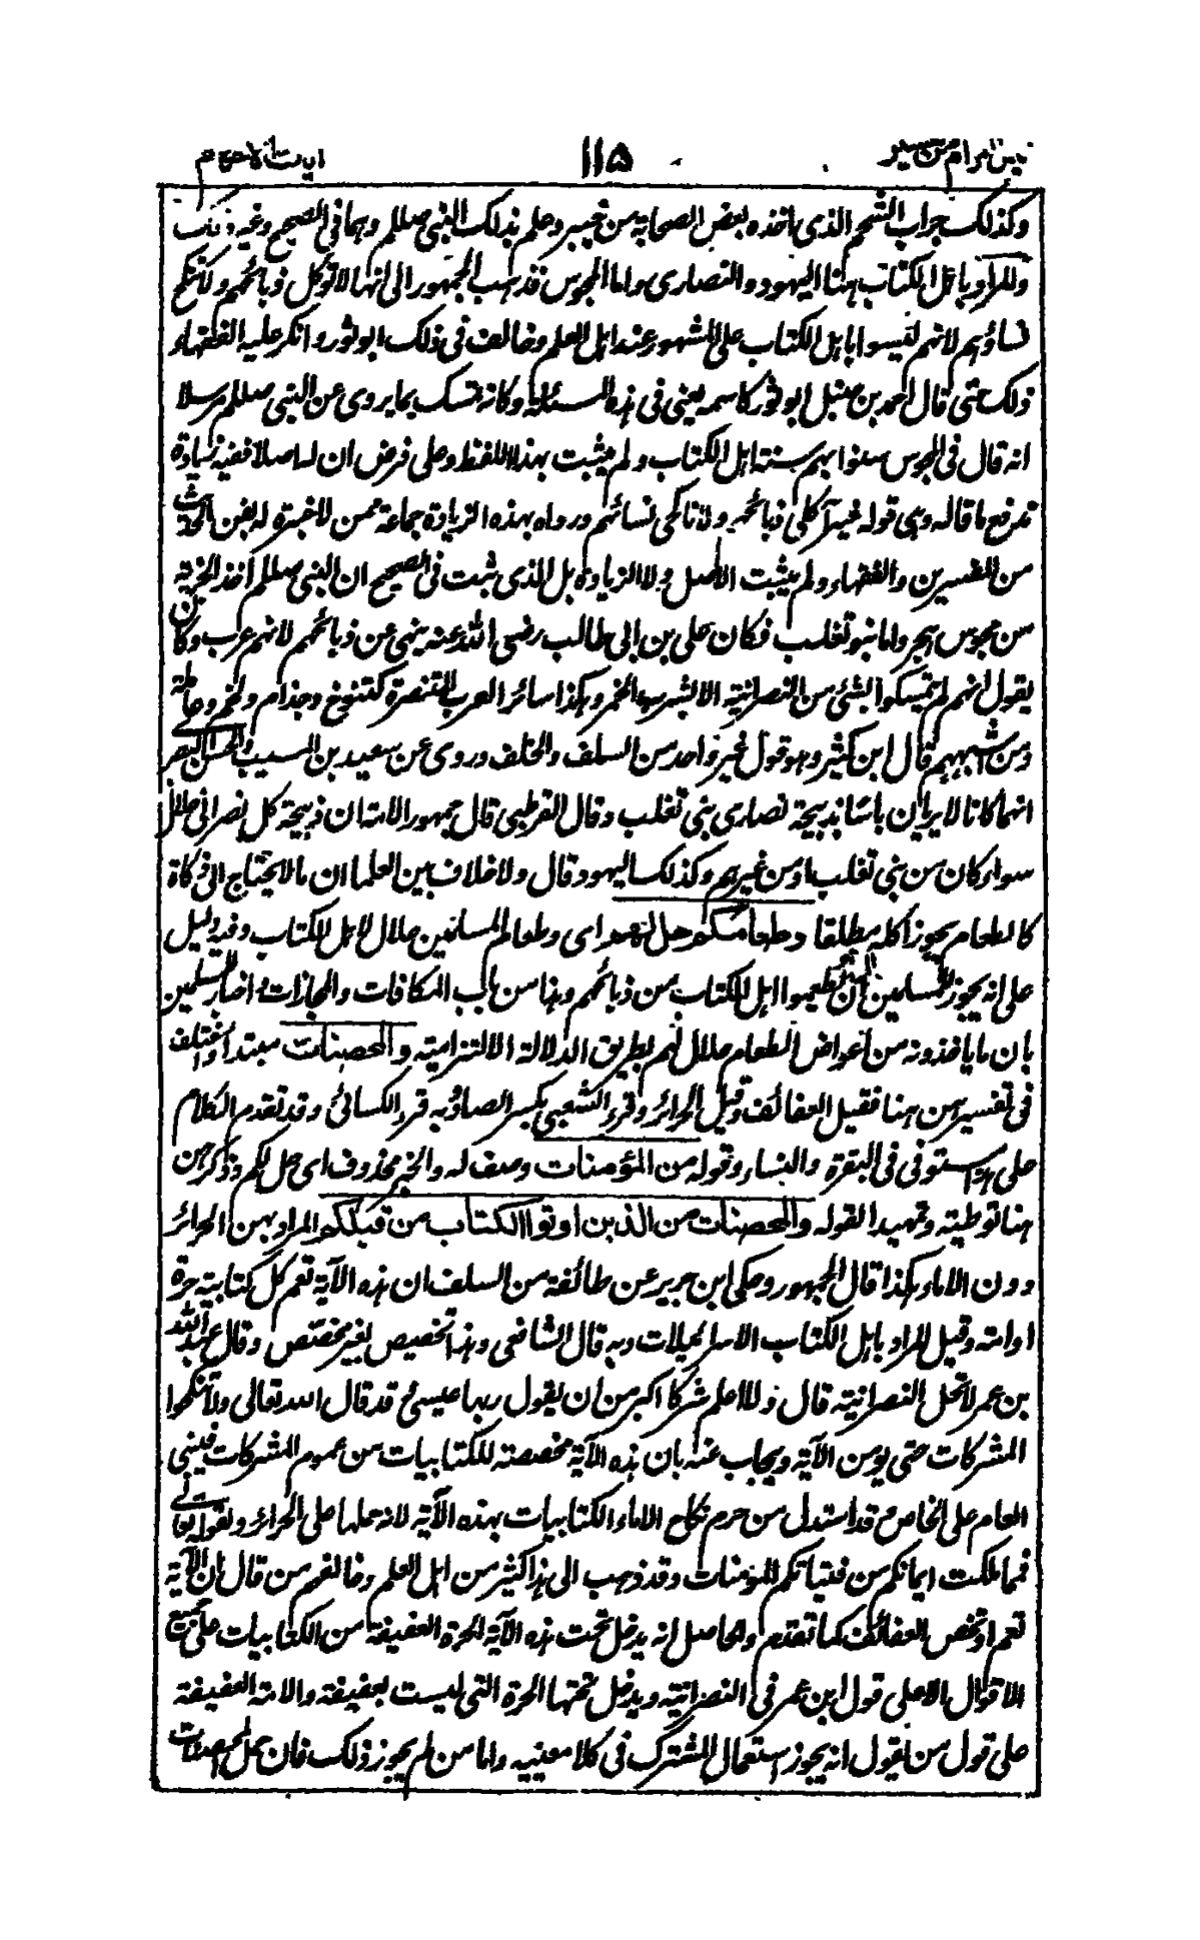 نيل المرام من تفسير ١١٥ ايات الاحكام
وكذلك جراب الشحم الذى اخذه بعض الصحابة من خيبر وعلم بذلك النبى صللم وهما فى الصحيح وغير ذلك
والمراد باهل الكتاب هنا اليهود والنصارى واما المجوس فذهب الجمهور الى انها لا توكل ذبائحهم ولا تنكح
نساؤهم لانهم ليسوا باهل الكتاب على المشهور عند اهل العلم وخالف فى ذلك ابو ثور وانكر عليه الفقهاء
ذلك حتى قال احمد بن حنبل ابو ثور كاسمه يعنى فى هذه المسئلة وكانه تمسك بما يروى عن النبى صللم مرسلا
انه قال فى المجوس سنوا بهم سنة اهل الكتاب ولم يثبت بهذا اللفظ وعلى فرض ان له اصلا ففيه زيادة
تدفع ما قاله وهى قوله غير آكلى ذبائحهم ولا ناكحى نسائهم ورواه بهذه الزيادة جماعة ممن لا خبرة له بفن الحديث
من المفسرين والفقهاء ولم يثبت الاصل ولا الزيادة بل الذى ثبت فى الصحيح ان النبى صللم اخذ الجزية
من مجوس هجر واما بنو تغلب فكان على بن ابى طالب رضى الله عنه ينهى عن ذبائحهم لانهم عرب وكان
يقول انهم لم يتمسكوا بشئ من النصرانية الا بشرب الخمر وهكذا سائر العرب المتنصرة كتنوخ وجذام ولخم وعاملة
ومن شبههم قال ابن كثير وهو قول غير واحد من السلف والخلف وروى عن سعيد بن المسيب والحسن البصرى
انهما كانا لا يريان باسا بذبيحة نصارى بنى تغلب وقال القرطبى قال جمهور الامة ان ذبيحة كل نصرانى حلال
سواء كان من بنى تغلب او من غيرهم وكذلك اليهود قال ولا خلاف بين العلما ان ما لا يحتاج الى ذكاة
كالطعام يجوز اكله مطلقا وطعامكم حل لهم اى وطعام المسلمين حلال لاهل الكتاب وفيه دليل
على انه يجوز للمسلمين ان يطعموا اهل الكتاب من ذبائحهم وهذا من باب المكافات والمجازات واخبار المسلمين
بان ما ياخذونه من اعواض الطعام حلال لهم بطريق الدلالة الالتزامية والمحصنات مبتدا واختلف
فى تفسيرهن هنا فقيل العفائف وقيل الحرائر وقرء الشعبى بكسر الصاد وبه قرء الكسائى وقد تقدم الكلام
على هذا مستوفى فى البقرة والنساء وقوله من المؤمنات وصف له والخبر محذوف اى حل لكم وذكرهن
هنا توطية وتمهيدا لقوله والمحصنات من الذين اوتوا الكتاب من قبلكم المراد بهن الحرائر
دون الاماء هكذا قال الجمهور وحكى ابن جرير عن طائفة من السلف ان هذه الآية تعم كل كتابية حرة
او امة وقيل المراد باهل الكتاب الاسرائيليات وبه قال الشافعى وهذا تخصيص بغير مخصص وقال عبد الله
بن عمر لا تحل النصرانية قال ولا اعلم شركا اكبر من ان يقول ربها عيسى وقد قال الله تعالى ولا تنكحوا
المشركات حتى يومن الآية ويجاب عنه بان هذه الآية مخصصة للكتابيات من عموم المشركات فيبنى
العام على الخاص وقد استدل من حرم نكاح الاماء الكتابيات بهذه الآية لانه حملها على الحرائر ولقوله تعالى
فمما ملكت ايمانكم من فتياتكم المؤمنات وقد ذهب الى هذا كثير من اهل العلم وخالفهم من قال ان الآية
تعم او تخص العفائف كما تقدم والحاصل انه يدخل تحت هذه الآية الحرة العفيفة من الكتابيات على جميع
الاقوال الا على قول ابن عمر فى النصرانية ويدخل تحتها الحرة التى ليست بعفيفة والامة العفيفة
على قول من يقول انه يجوز استعمال المشترك فى كلا معنييه واما من لم يجوز ذلك فان حمل المحصنات